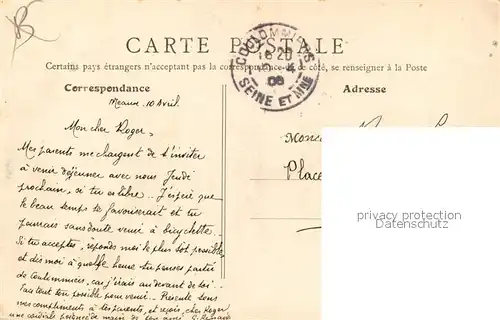 CARTE POSTALE
Certains pays étrangers n'acceptant pas la correspondance de ce côté, se renseigner à la Poste
COULOMMIERS
SEINE ET MNE
Correspondance
Adresse
Meaux, 10 Avril.
Mon cher Roger,
Mes parents me chargent de t'inviter
à venir déjeuner avec nous Jeudi
prochain, si tu es libre.. J'espère que
le beau temps te favoriserait et tu
pourrais sans doute venir à bicyclette.
Si tu acceptes, réponds moi le plus tôt possible,
et dis moi à quelle heure tu penses partir
de Coulommiers, car j'irais au devant de toi.
Fau tout ton possible pour venir. Présente tous
mes compliments à tes parents, et reçois, cher Roger,
une cordiale poignée de main de ton ami
Place
privacy protection
Datenschutz